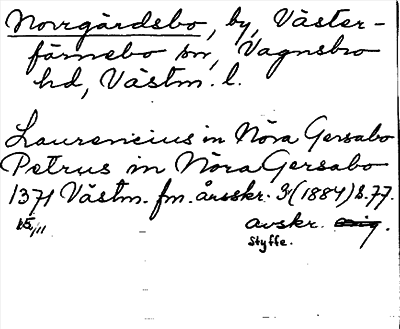 Norrgårdsbo, by, Väster-
färnebo sn, Vagnsbro
hd, Västm. l.
Laurencius in Nöra Gersabo
Petrus in Nöra Gersabo
1371 Västm. fm. årsskr. 3 (1884) s. 77.
15/11 avskr. orig.
Styffe.